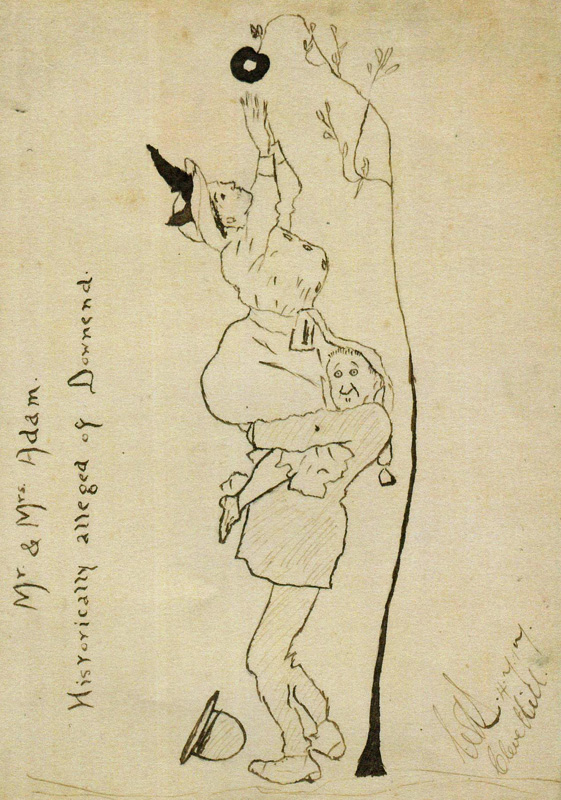 Mr. & Mrs. Adam.
Historically alleged of Downend.
Cleve Hill.